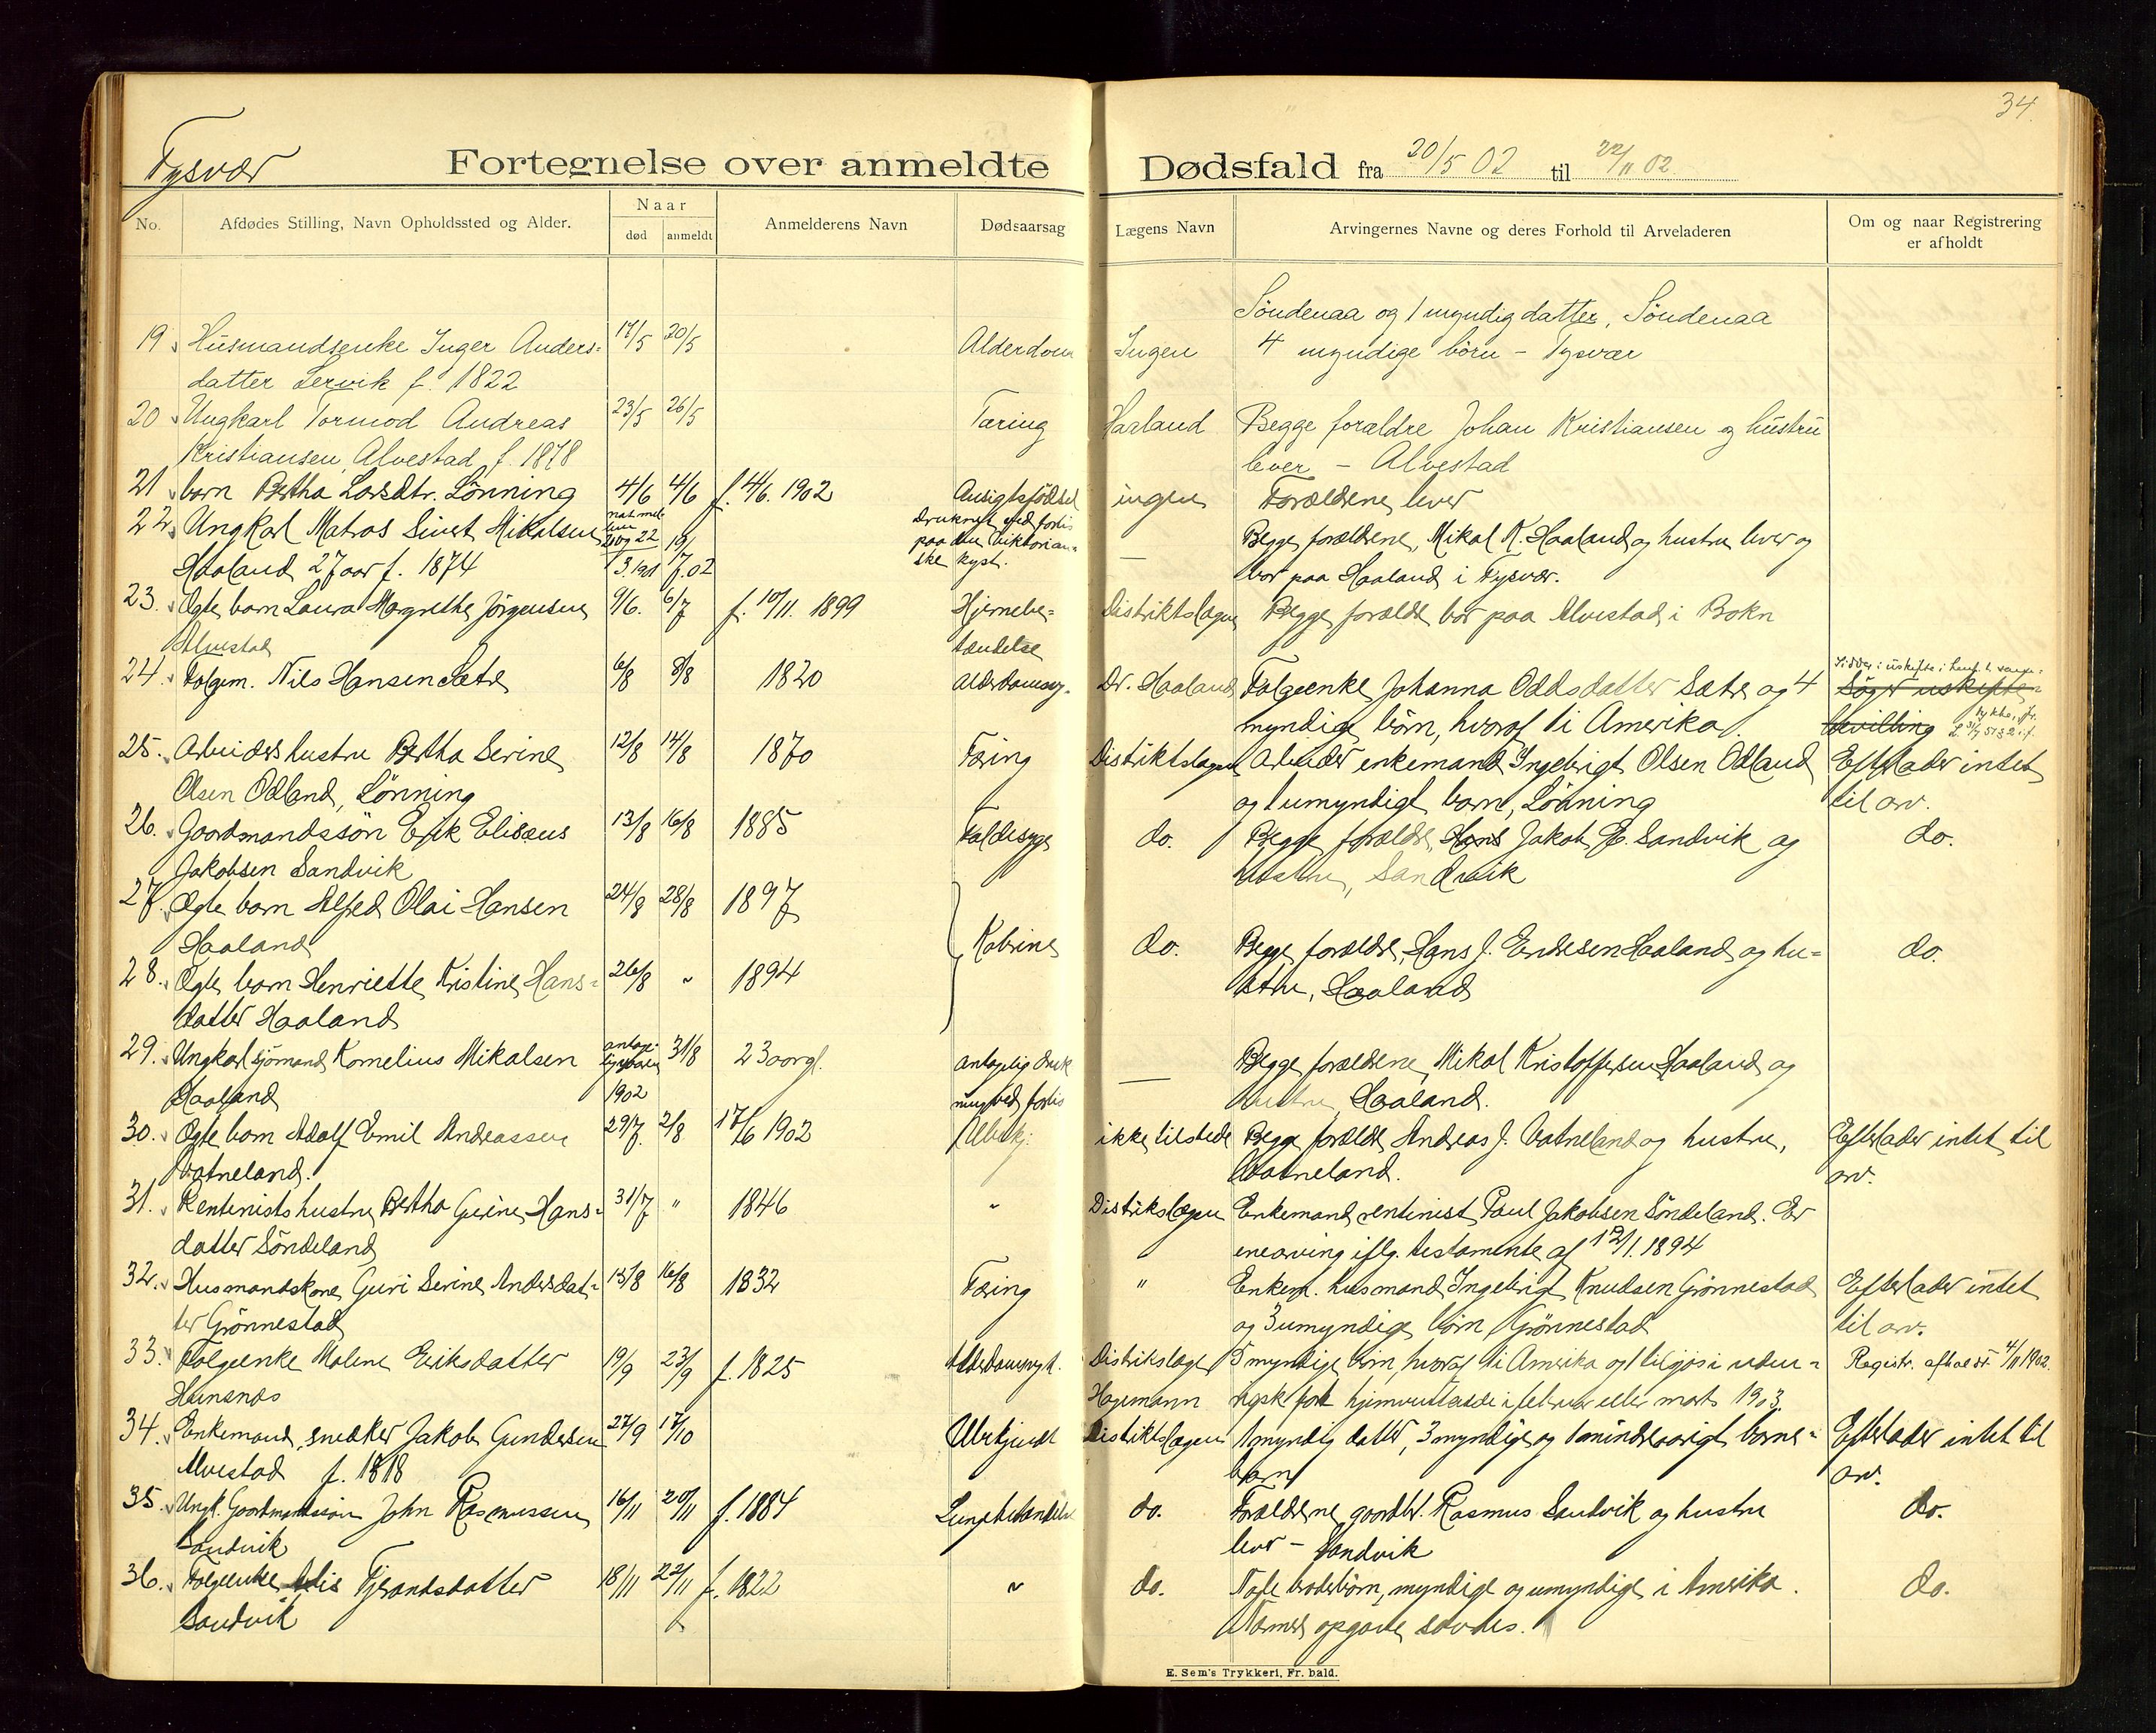 34.
Tysvær
Fortegnelse over anmeldte Dødsfald fra 20/5 02 til 22/11 02
No.
Afdødes Stilling, Navn Opholdssted og Alder.
Naar
død
anmeldt
Anmelderens Navn
Dødsaarsag
Lægens Navn
Arvingernes Navne og deres Forhold til Arveladeren
Om og naar Registrering
er afholdt
Söndenaa og 1 myndig datter, Söndenaa
19 Husmandsenke Inger Anders- 17/5 20/5 Alderdom Ingen 4 myndige börn - Tysvær
datter Lervik f. 1822
20 Ungkarl Tormod Andreas 23/5 26/5 Tæring Haaland Begge forældre Johan Kristiansen og hustru
Kristiansen, Alvestad f. 1878 lever - Alvestad
21 barn Bertha Larsdtr. Lönning 4/6 4/6 f. 4/6. 1902 Ansigtsfödsel ingen Forældrene lever
22 Ungkarl Matros Sivert Mikalsen 22 druknet ved forlis — Begge forældrene, Mikal K. Haaland og hustru lever og
Haaland 27 aar f. 1874 7.02 paa den viktorian- bor paa Haaland i Tysvær.
ske kyst.
23. Ægte barn Laura Margrethe Jörgensen 9/6. 6/7 f. 10/11. 1899 Hjernebe- Distriktslægen Begge forældre bor paa Alvestad i Bokn
Alvestad tændelse
24. Folgem. Nils Hansen Sætre 6/8 8/8 1820 Dr. Haaland Folgeenke Johanna Oddsdatter Sætre og 4 Söger uskifte-
myndige börn, hvoraf 1 i Amerika. bevilling
25. Arbeiderhustru Bertha Serine 12/8 14/8 1870 Tæring Distriktslægen Arbeider enkemand Ingebrigt Olsen Odland Efterlader intet
Olsen Odland, Lönning og 1 umyndigt barn, Lönning til arv.
26. Gaardmandssön Erik Eliseus 13/8 16/8 1885 Faldesyge do. Begge forældre, Hans Jakob E. Sandvik og do.
Jakobsen Sandvik hustru, Sandvik
27. Ægte barn Alfred Olai Hansen 24/8 28/8 1897
Haaland Kolerine do. Begge forældre, Hans J. Endresen Haaland og hu- do.
28. Ægte barn Henriette Kristine Hans- 26/8 " 1894 stru, Haaland
datter Haaland
29. Ungkarl sjömand Kornelius Mikalsen 31/8 23 aar gl. antagelig druk — Begge forældrene, Mikal Kristoffersen Haaland og
Haaland 1902 ning ved forlis hustru Haaland.
30. Ægte barn Adolf Emil Andreassen 29/7. 2/8 17/6 1902 Ubekj. ikke tilstede Begge forældre Andreas J. Vatneland og hustru, Efterlader intet til
Vatneland. Vatneland. arv.
31. Rentenists hustru Bertha Gurine Hans- 31/7 " 1846 " Distrikslægen Enkemand rentenist Paul Jakobsen Söndeland. Er
datter Söndeland enearving iflg. testamente af 12/1. 1894
32. Husmandskone Guri Serine Andersdat- 13/8 16/8 1832 Tæring " Enkem. husmand Ingebrigt Knudsen Grönnestad Efterlader intet
ter Grönnestad og 3 umyndige börn, Grönnestad til arv.
33. Folgeenke Malene Eriksdatter 19/9 23/9 f. 1825 Distrikslæge 5 myndige börn, hvoraf 1 i Amerika og 1 tilsjös i uden- Registr. afholdt 4/11 1902.
Hunsnæs Hagemann rigsk fart hjemventende i februar eller mars 1903.
34. Enkemand, snedker Jakob Gundersen 27/9 17/10 Ubekjendt Distriktslægen 1 myndig datter, 3 myndige og 1 mindreaarigt barne- Efterlader intet til
Alvestad f. 1818 barn arv.
35. Ungk. Gaardmandssön John Rasmussen 16/11 20/11 f. 1884 Lungebetændelse do. Forældrene gaardbr. Rasmus Sandvik og hustru do.
Sandvik lever - Sandvik
36. Folgeenke Tjerandsdatter 18/11 22/11 f. 1822 " do. Nogle broderbörn, myndige og umyndige i Amerika. do.
Sandvik Nærmere opgave savnes.
E. Sem's Trykkeri, Fr. hald.